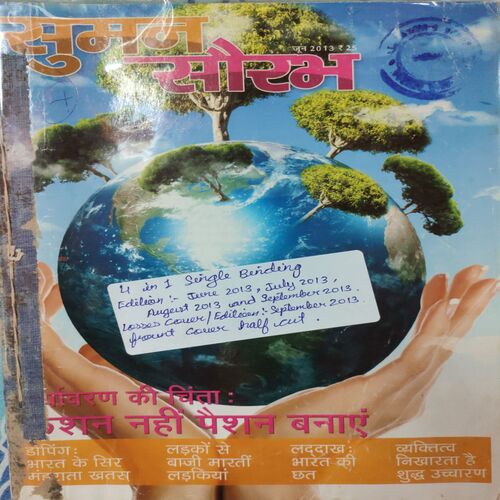 सुमन
सौरभ
जून 2013 ₹ 25
4 in 1 Single Bending
Edition :- June 2013, July 2013,
August 2013 and September 2013.
Losses Cover/Edition:- September 2013.
front Cover half cut.
की चिंता :
नहीं पैशन बनाएं
डोपिंग:
भारत के सिर
मंडराता खतरा
लड़कों से
बाजी मारतीं
लड़कियां
लद्दाख:
भारत की
छत
व्यक्तित्व
निखारता है
शुद्ध उच्चारण